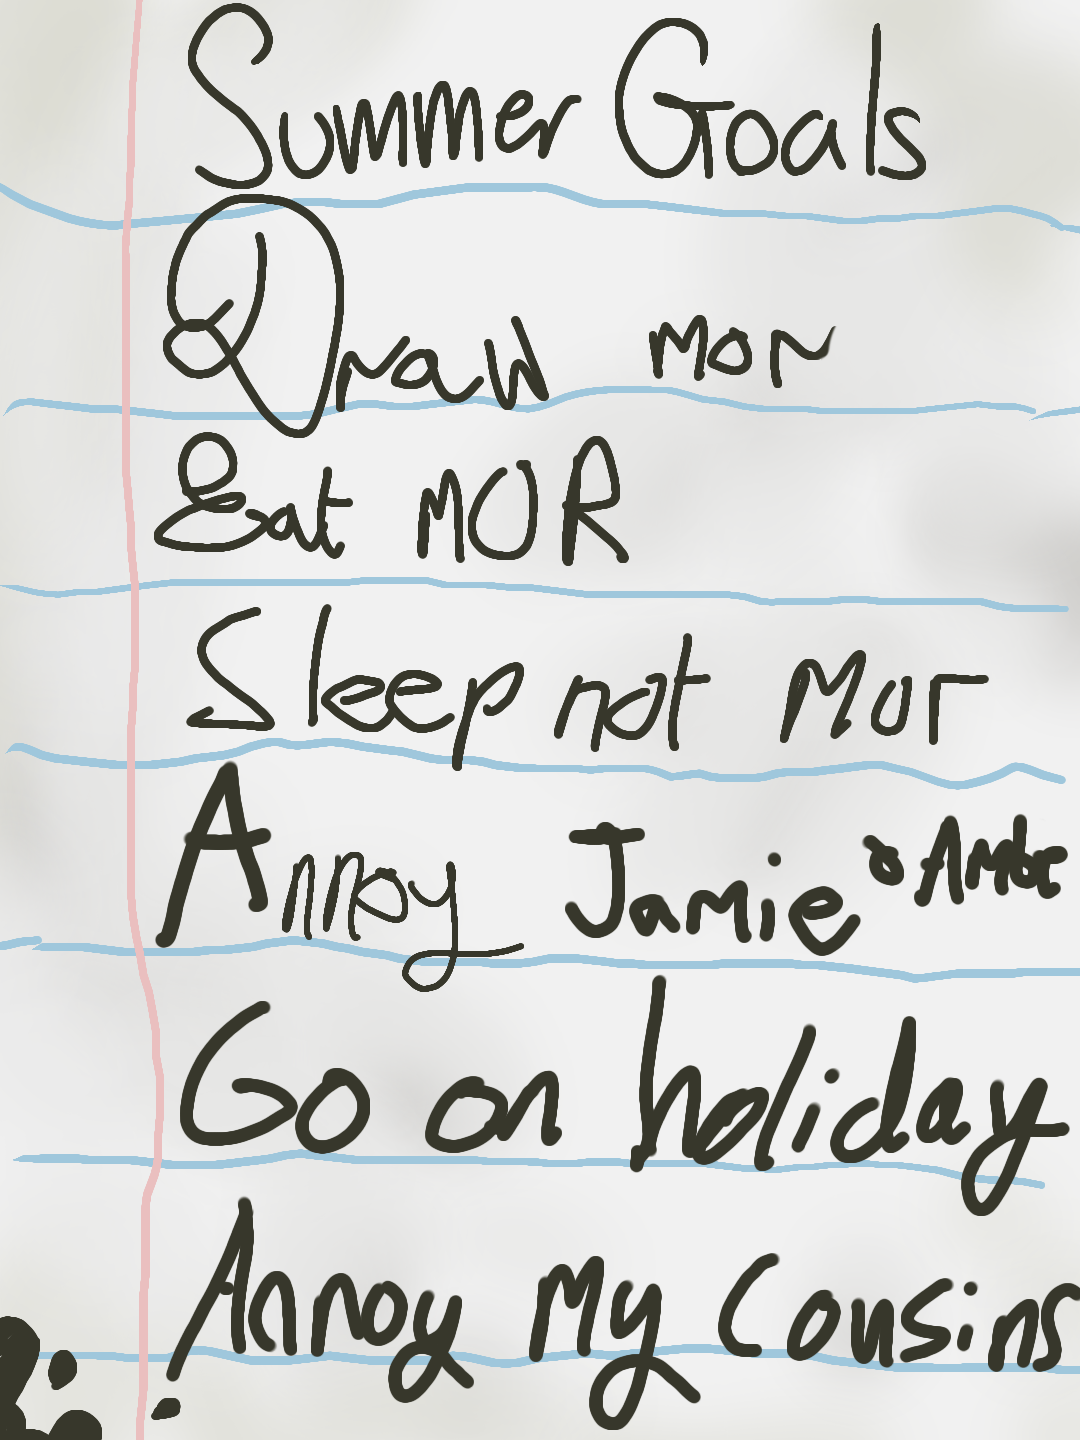 Summer Goals
Draw mor
Eat MOR
Sleep not Mor
Annoy Jamie &
Go on holiday
Annoy My Cousins